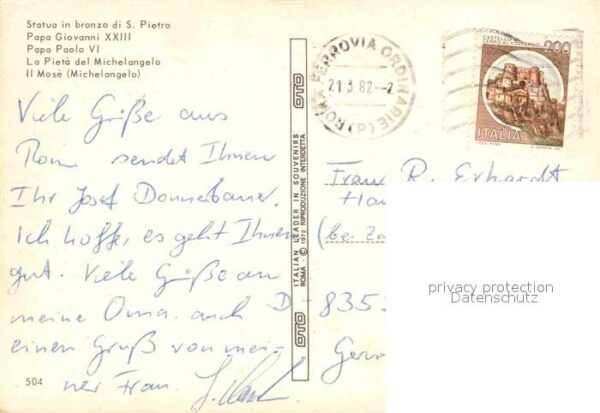 Statua in bronzo di S. Pietro
Papa Giovanni XXIII
Papa Paolo VI
La Pietà del Michelangelo
Il Mosè (Michelangelo)
Viele Grüße aus
Rom sendet Ihnen
Ihr Josef Donnerbauer.
Ich hoffe, es geht Ihnen
gut. Viele Grüße an
meine Oma. auch
einen Gruß von mei-
ner Frau.
504
OTO
ITALIAN LEADER IN SOUVENIRS
ROMA - © 1972 RIPRODUZIONE INTERDETTA
OTO
ROMA FERROVIA ORDINARIE
21.3.82
200
ITALIA
Frau R. Erhardt
(bei
D-835
Ger
privacy protection
Datenschutz